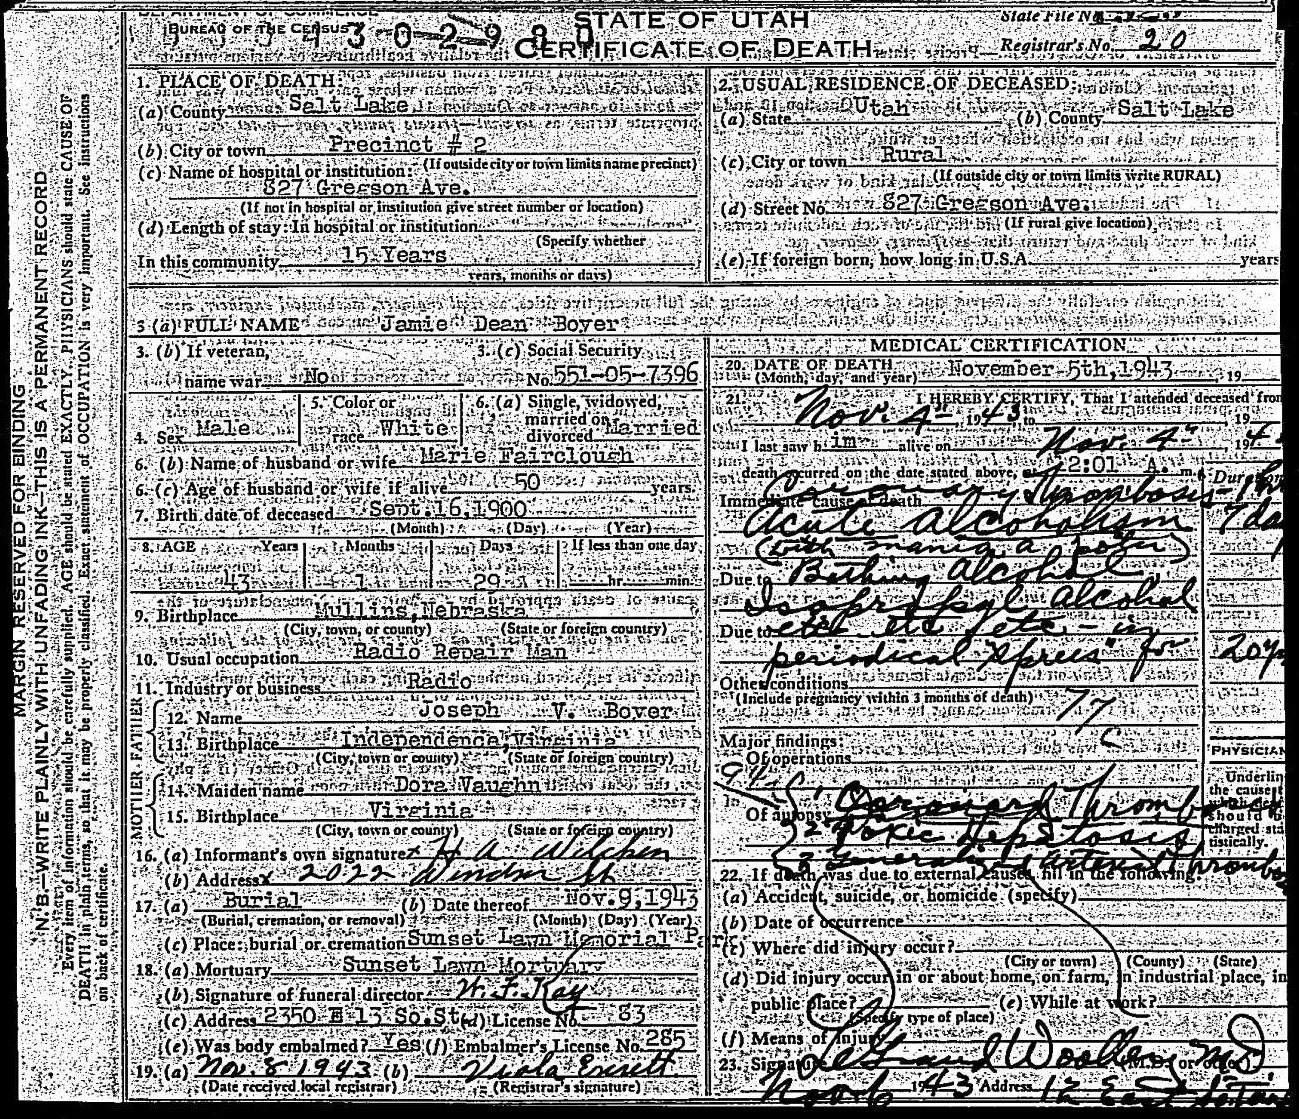 BUREAU OF THE CENSUS
STATE OF UTAH
CERTIFICATE OF DEATH
State File No.
Registrar's No. 20
MARGIN RESERVED FOR BINDING
N. B.—WRITE PLAINLY WITH UNFADING INK—THIS IS A PERMANENT RECORD
Every item of information should be carefully supplied. AGE should be stated EXACTLY. PHYSICIANS should state CAUSE OF
DEATH in plain terms, so that it may be properly classified. Exact statement of OCCUPATION is very important. See instructions
on back of certificate.
1. PLACE OF DEATH:
(a) County Salt Lake
(b) City or town Precinct # 2
(If outside city or town limits name precinct)
(c) Name of hospital or institution:
827 Gregson Ave.
(If not in hospital or institution give street number or location)
(d) Length of stay: In hospital or institution
(Specify whether
In this community 15 Years
years, months or days)
2. USUAL RESIDENCE OF DECEASED:
(a) State Utah (b) County Salt Lake
(c) City or town Rural
(If outside city or town limits write RURAL)
(d) Street No. 827 Gregson Ave.
(If rural give location)
(e) If foreign born, how long in U.S.A. years
3 (a) FULL NAME Jamie Dean Boyer
3. (b) If veteran, 3. (c) Social Security
name war No No. 551-05-7396
4. Sex Male
5. Color or race White
6. (a) Single, widowed, married or divorced Married
6. (b) Name of husband or wife Marie Fairclough
6. (c) Age of husband or wife if alive 50 years
7. Birth date of deceased Sept.16,1900
(Month) (Day) (Year)
8. AGE Years Months Days If less than one day
43 1 29 hr. min.
9. Birthplace Mullins,Nebraska
(City, town, or county) (State or foreign country)
10. Usual occupation Radio Repair Man
11. Industry or business Radio
FATHER
12. Name Joseph V. Boyer
13. Birthplace Independence,Virginia
(City, town or county) (State or foreign country)
MOTHER
14. Maiden name Dora Vaughn
15. Birthplace Virginia
(City, town or county) (State or foreign country)
16. (a) Informant's own signature x H A
(b) Address x 2022 Windsor St
17. (a) Burial (b) Date thereof Nov.9,1943
(Burial, cremation, or removal) (Month) (Day) (Year)
(c) Place: burial or cremation Sunset Lawn Memorial Park
18. (a) Mortuary Sunset Lawn Mortuary
(b) Signature of funeral director W. F. Kay
(c) Address 2350 E 13 So.St. (d) License No. 83
(e) Was body embalmed? Yes (f) Embalmer's License No. 285
19. (a) Nov. 8 1943 (b) Viola
(Date received local registrar) (Registrar's signature)
MEDICAL CERTIFICATION
20. DATE OF DEATH November 5th,1943, 19
(Month, day, and year)
21. I HEREBY CERTIFY, That I attended deceased from
Nov. 4th, 1943 to , 19
I last saw h im alive on Nov. 4th, 194
death occurred on the date stated above, at 2:01 A. m. Duration
Immediate cause of death Coronary Thrombosis - 1 h
Acute Alcoholism 7 da
(with
Due to Bathing alcohol
Isopropyl alcohol
Due to etc etc etc - in
periodical "sprees" for 20 y
Other conditions
(Include pregnancy within 3 months of death)
77
c
Major findings:
Of operations
94
PHYSICIAN
Underlin
the cause t
should b
charged sta
tistically.
Of autopsy 1 Coronary Thrombosis
2 Toxic Hepatosis
3 Generalized
22. If death was due to external causes, fill in the following:
(a) Accident, suicide, or homicide (specify)
(b) Date of occurrence
(c) Where did injury occur?
(City or town) (County) (State)
(d) Did injury occur in or about home, on farm, in industrial place, in
public place? (e) While at work?
(Specify type of place)
(f) Means of injury
23. Signature LeGrand Woolley M D (M.D. or other)
Nov 6 1943 Address 12 East So Tem